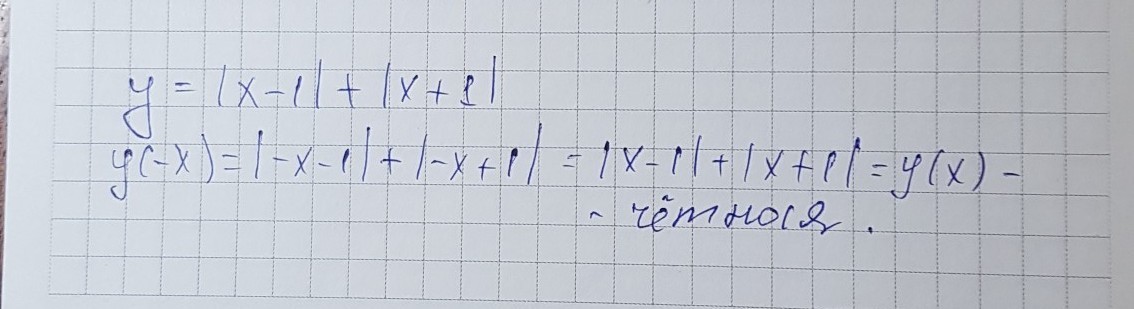 y = |x-1| + |x+1|
y(-x) = |-x-1| + |-x+1| = |x-1| + |x+1| = y(x) -
- чётная.